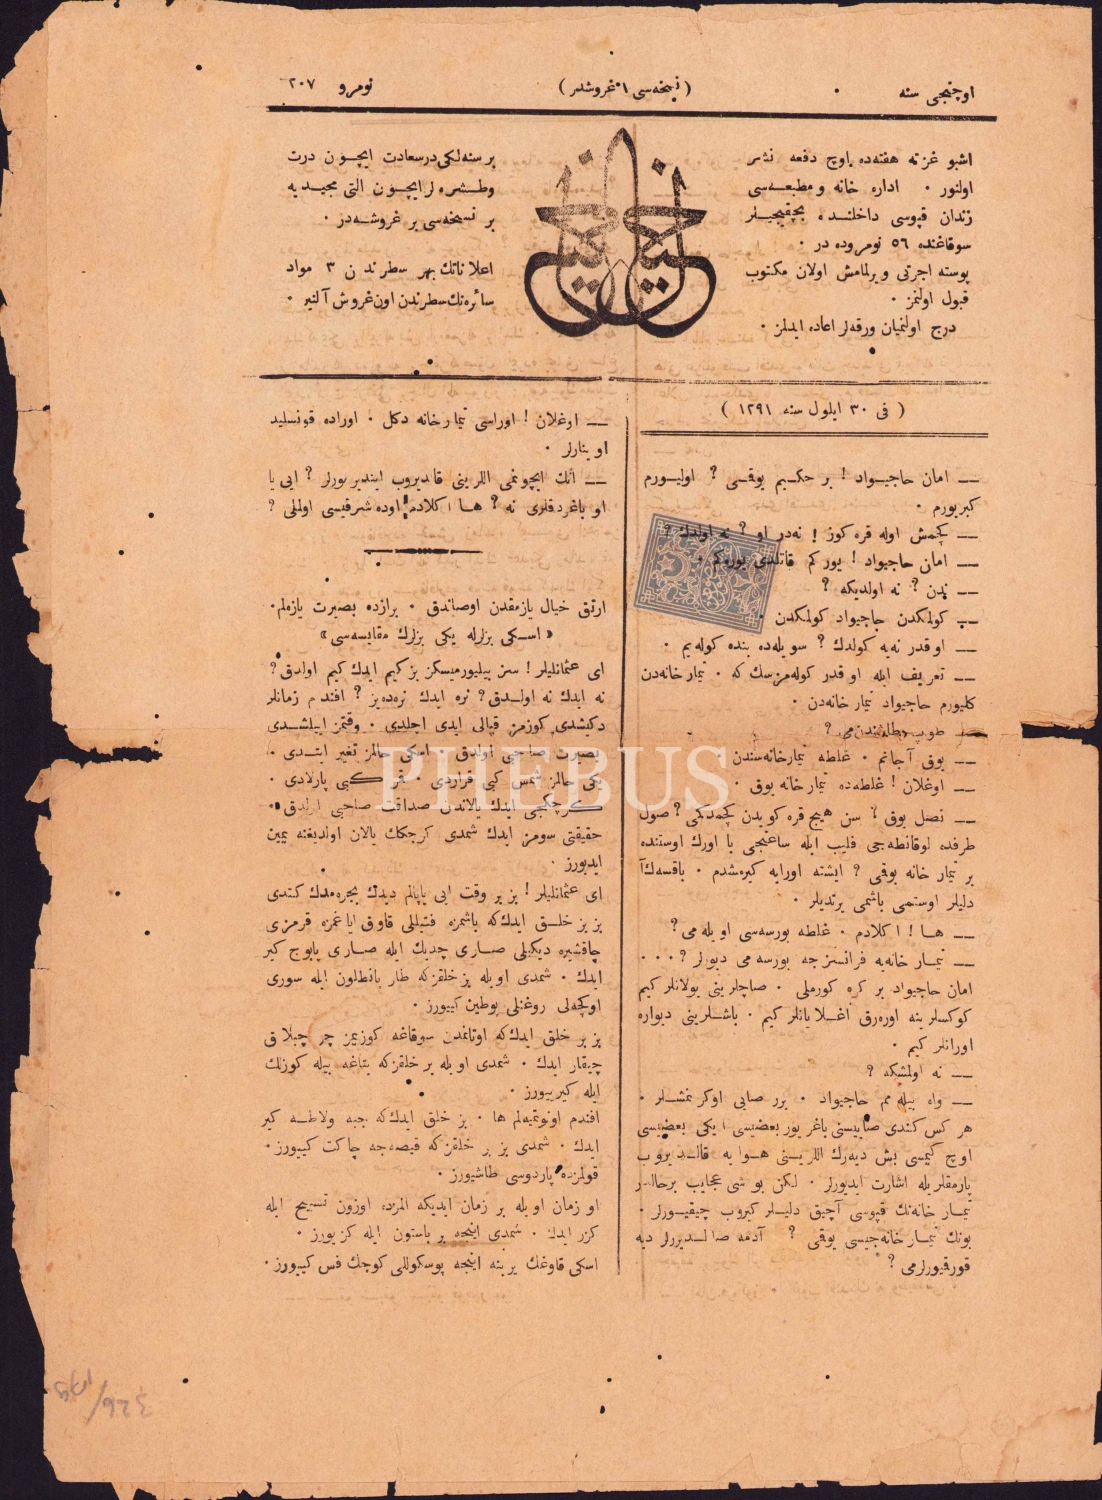 اوچنجی سنه
( نسخه‌سی ۱ غروشدر )
نومرو ۲۰۷
اشبو غزته هفته‌ده اوچ دفعه نشر
اولنور ٠ اداره خانه و مطبعه‌سی
زندان قپوسی داخلنده بچقیجیلر
سوقاغنده ٥٦ نومروده در ٠
پوسته اجرتی ویرلمامش اولان مکتوب
قبول اولنمز ٠
درج اولنمیان ورقه‌لر اعاده ایدلمز ٠
خیال
بر سنه‌لکی درسعادت ایچون درت
وطشره‌لر ایچون التی مجیدیه
بر نسخه‌سی بر غروشه‌در ٠
اعلاناتك بهر سطرندن ۳ مواد
سائره‌نك سطرندن اون غروش آلنیر ٠
( فی ۳۰ ایلول سنه ۱۲۹۱ )
— امان حاجیواد ! بر حکیم یوقمی ? اولیورم
کبریورم ٠
— کچمش اوله قره کوز ! نه‌در او ? نه اولدك ?
— امان حاجیواد ! یورکم قاتلدی یورکم ٠
— ندن ? نه اولدیکه ?
— کولمکدن حاجیواد کولمکدن ٠
— او قدر نه‌یه کولدك ? سویله‌ده بنده کوله‌یم ٠
— تعریف ایله او قدر کوله‌مزسك که ٠ تیمارخانه‌دن
کلیورم حاجیواد تیمارخانه‌دن ٠
— طوپ طاشندن‌می ?
— یوق آجانم ٠ غلطه تیمارخانه‌سندن
— اوغلان ! غلطه‌ده تیمارخانه یوق ٠
— نصل یوق ? سن هیچ قره کویدن کچمدکمی ? صول
طرفده لوقانطه‌جی فلیپ ایله ساعتجی یاورك اوستنده
بر تیمارخانه یوقمی ? ایشته اورایه کیرمشدم ٠ باقسه‌ك آ
دلیلر اوستمی باشمی یرتدیلر ٠
— ها ! اکلادم ٠ غلطه بورسه‌سی اویله‌می ?
— تیمارخانه‌یه فرانسزجه بورسه‌می دیورلر ? ٠٠٠
امان حاجیواد بر کره کورملی ٠ صاچلرینی یولانلر کیم
کوکسلرینه اوره‌رق آغلایانلر کیم ٠ باشلرینی دیواره
اورانلر کیم ٠
— نه اولمشکه ?
— واه بیله‌مم حاجیواد ٠ برر صایی اوکرنمشلر ٠
هر کس کندی صاییسنی باغریور بعضیسی ایکی بعضیسی
اوچ کیمسی بش دیه‌رك اللرینی هوایه قالدیروب
پارمقلریله اشارت ایدیورلر ٠ لکن بو شی عجایب بر حالدر
تیمارخانه‌نك قپوسی آچیق دلیلر کیروب چیقیورلر ٠
بونك تیمارخانه‌جیسی یوقمی ? آدمه صالدیررلر دیه
قورقیورلرمی ?
— اوغلان ! اوراسی تیمارخانه دکل ٠ اوراده قونسلید
اوینارلر ٠
— انك ایچونمی اللرینی قالدیروب ایندیریورلر ? ایی یا
او باغردقلری نه ? ها اکلادم اوده شرقیسی اولملی ?
ارتق خیال یازمقدن اوصاندق ٠ برازده بصیرت یازه‌لم ٠
« اسکی بزلرله یکی بزلرك مقایسه‌سی »
ای عثمانلیلر ! سز بیلیورمیسکز بز کیم ایدك کیم اولدق ?
نه ایدك نه اولدق ? نره ایدك نره‌ده‌یز ? افندم زمانلر
دکیشدی کوزمز قپالی ایدی اچلدی ٠ وقتمز ایبلشدی
بصیرت صاحبی اولدق ٠ اسکی حالمز تغیر ایتدی ٠
یکی حالمز شمس کبی قراردی ٠ قمر کبی پارلادی ٠
کرچکجی ایدك یالاندن صداقت صاحبی اولدق ٠
حقیقتی سومز ایدك شمدی کرچکك یالان اولدیغنه یمین
ایدیورز ٠
ای عثمانلیلر ! بز بر وقت ایی یاپالم دیدك بجره‌مدك کندی
بز بر خلق ایدك که باشمزه فتیللی قاوق ایاغمزه قرمزی
چاقشیره دیکیلی صاری چدیك ایله صاری پاپوج کیر
ایدك ٠ شمدی اویله بر خلقزکه طار پانطلون ایله سوری
اوکچه‌لی روغنلی پوطین کییورز ٠
بز بر خلق ایدك که اوتانمدن سوقاغه کوزیمز چر چبلاق
چیقار ایدك ٠ شمدی اویله بر خلقزکه یتاغه بیله کوزلك
ایله کیرییورز ٠
افندم اونوتمیه‌لم ها ٠ بز خلق ایدك که جبه ولاطه کیر
ایدك ٠ شمدی بز بر خلقزکه قیصه‌جه چاکت کییورز ٠
قولمزده پاردوسی طاشیورز ٠
او زمان اویله بر زمان ایدیکه المزده اوزون تسبیح ایله
کزر ایدك ٠ شمدی اینجه بر باستون ایله کزیورز ٠
اسکی قاوغك یرینه اینجه پوسکوللی کوچك فس کییورز ٠
PHEBUS